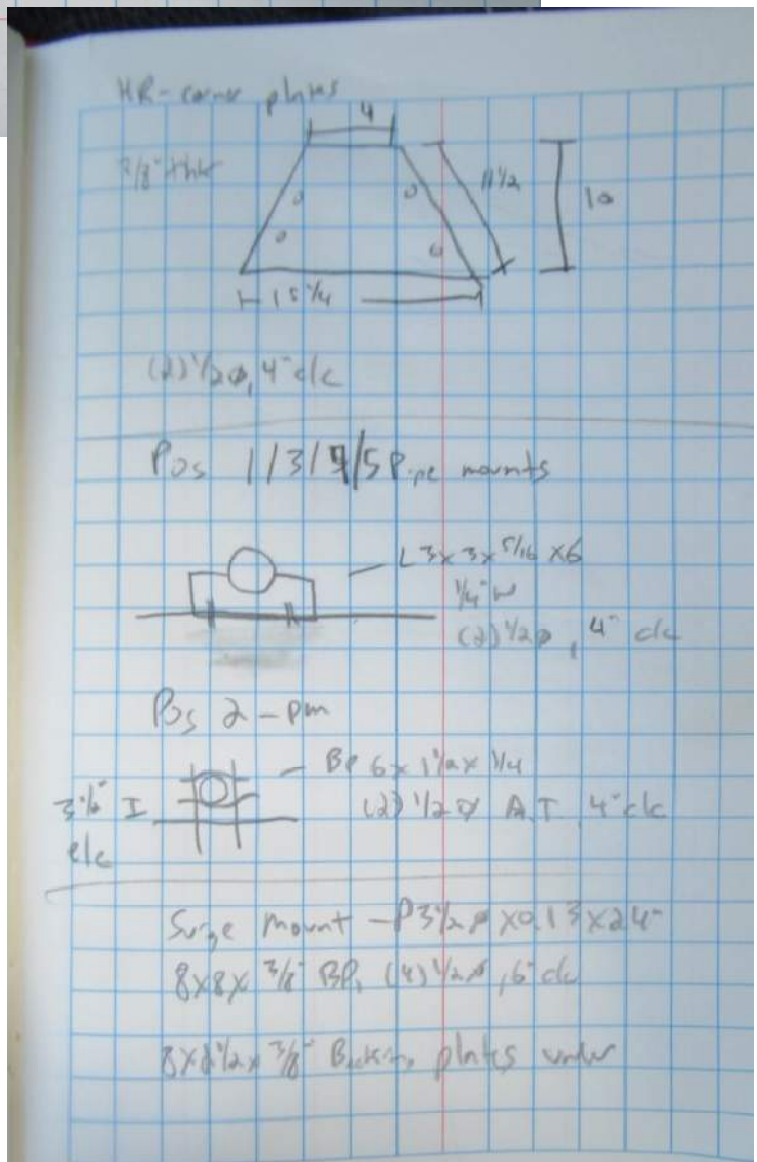 HR-corner plates
4
3/8" thk
11 1/2
10
15 1/4
(2) 1/2ø, 4" c/c
Pos 1/3/4/5 Pipe mounts
L 3x3x5/16 x6
1/4" w
(2) 1/2ø, 4" c/c
Pos 2 - pm
BP 6x1 1/2x1/4
3 1/2"
c/c
(2) 1/2ø A.T. 4" c/c
Surge Mount - P3 1/2ø x0.13x24"
8x8x3/8" BP, (4) 1/2ø, 6" c/c
1/2x3/8" Backing plates under